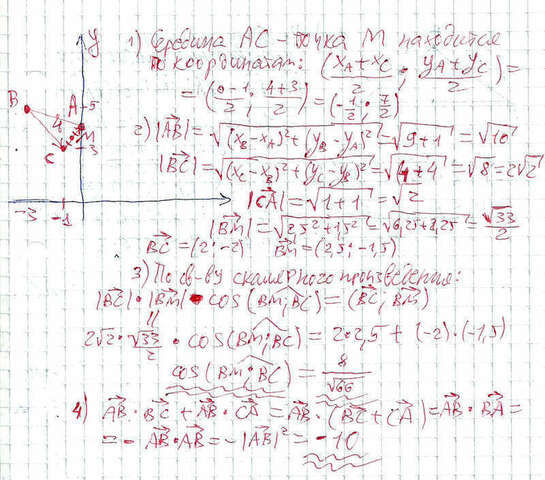 y
B
A
5
4
M
C
3
-3 -1
1) Середина AC - точка M находится
по координатам: (xA+xC/2 ; yA+yC/2) =
= (0-1/2 ; 4+3/2) = (-1/2 ; 7/2)
2) |AB| = √(xB-xA)²+(yB-yA)² = √9+1 = √10
|BC| = √(xC-xB)²+(yC-yB)² = √4+4 = √8 = 2√2
|CA| = √1+1 = √2
|BM| = √2,5²+1,5² = √6,25+2,25 = √33/2
BC = (2; -2) BM = (2,5; -1,5)
3) По св-ву скалярного произведения:
|BC| · |BM| · cos(BM; BC) = (BC, BM)
2√2 · √33/2 · cos(BM; BC) = 2·2,5 + (-2)·(-1,5)
cos(BM; BC) = 8/√66
4) AB · BC + AB · CA = AB · (BC + CA) = AB · BA =
= - AB · AB = -|AB|² = -10